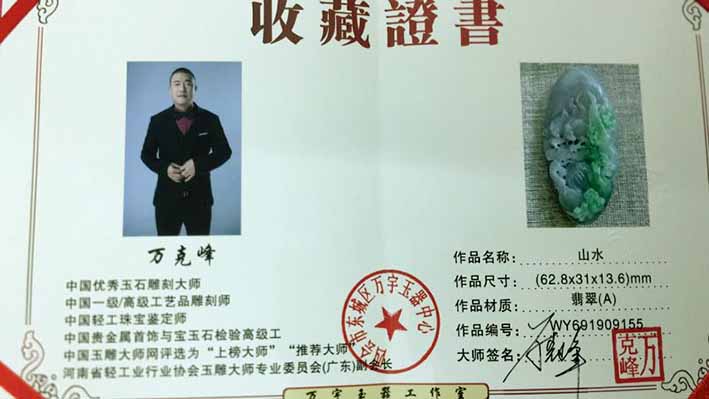 收藏證書
万克峰
中国优秀玉石雕刻大师
中国一级/高级工艺品雕刻师
中国轻工珠宝鉴定师
中国贵金属首饰与宝玉石检验高级工
中国玉雕大师网评选为“上榜大师”“推荐大师”
河南省轻工业行业协会玉雕大师专业委员会(广东)副会长
作品名称：山水
作品尺寸：(62.8x31x13.6)mm
作品材质：翡翠(A)
作品编号：WY691909155
大师签名：
万克峰
市东城区万字玉器中心
万字玉器工作室